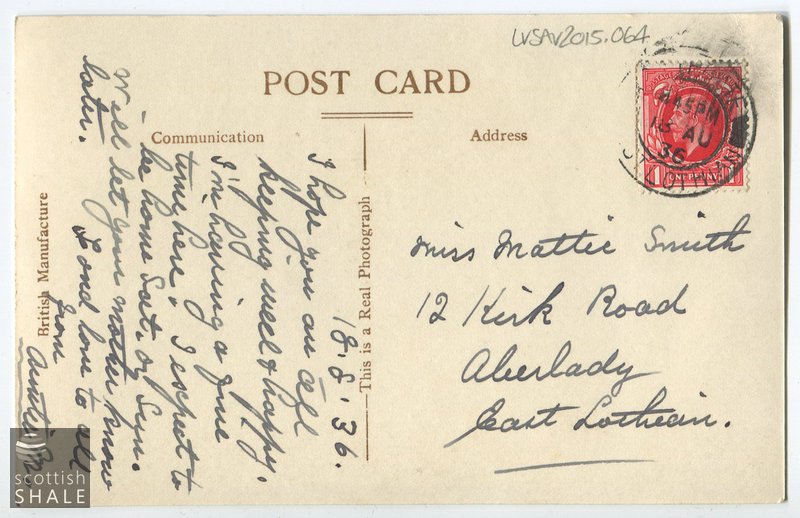 LVSAV2015.064
POST CARD
Communication
Address
British Manufacture
This is a Real Photograph
18.8.36.
I hope you are all
keeping well & happy.
I'm having a fine
time here. I expect to
be home Sat. or Sun.
Will let your mother know
later. Fond love to all
from
Auntie M.
Miss Mattie Smith
12 Kirk Road
Aberlady
East Lothian.
4 45 PM
18 AU
36
ONE PENNY
scottish
SHALE